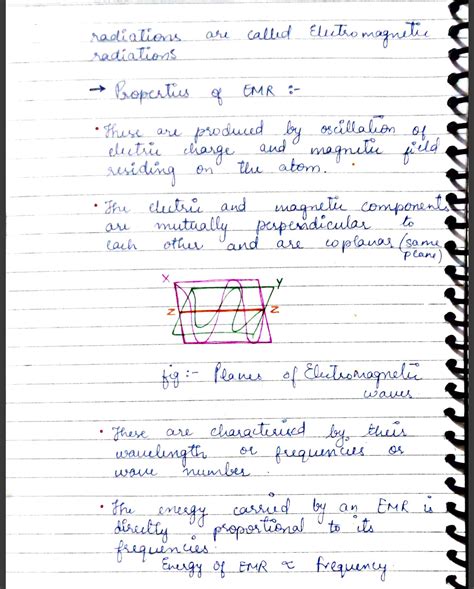 radiations are called Electromagnetic
radiations
→ Properties of EMR :-
• These are produced by oscillation of
electric charge and magnetic field
residing on the atom.
• The electric and magnetic components
are mutually perpendicular to
each other and are coplanar (same
plane)
X Y
Z Z
fig :- Planes of Electromagnetic
waves
• These are characterised by their
wavelength or frequencies or
wave number.
• The energy carried by an EMR is
directly proportional to its
frequencies.
Energy of EMR ∝ frequency